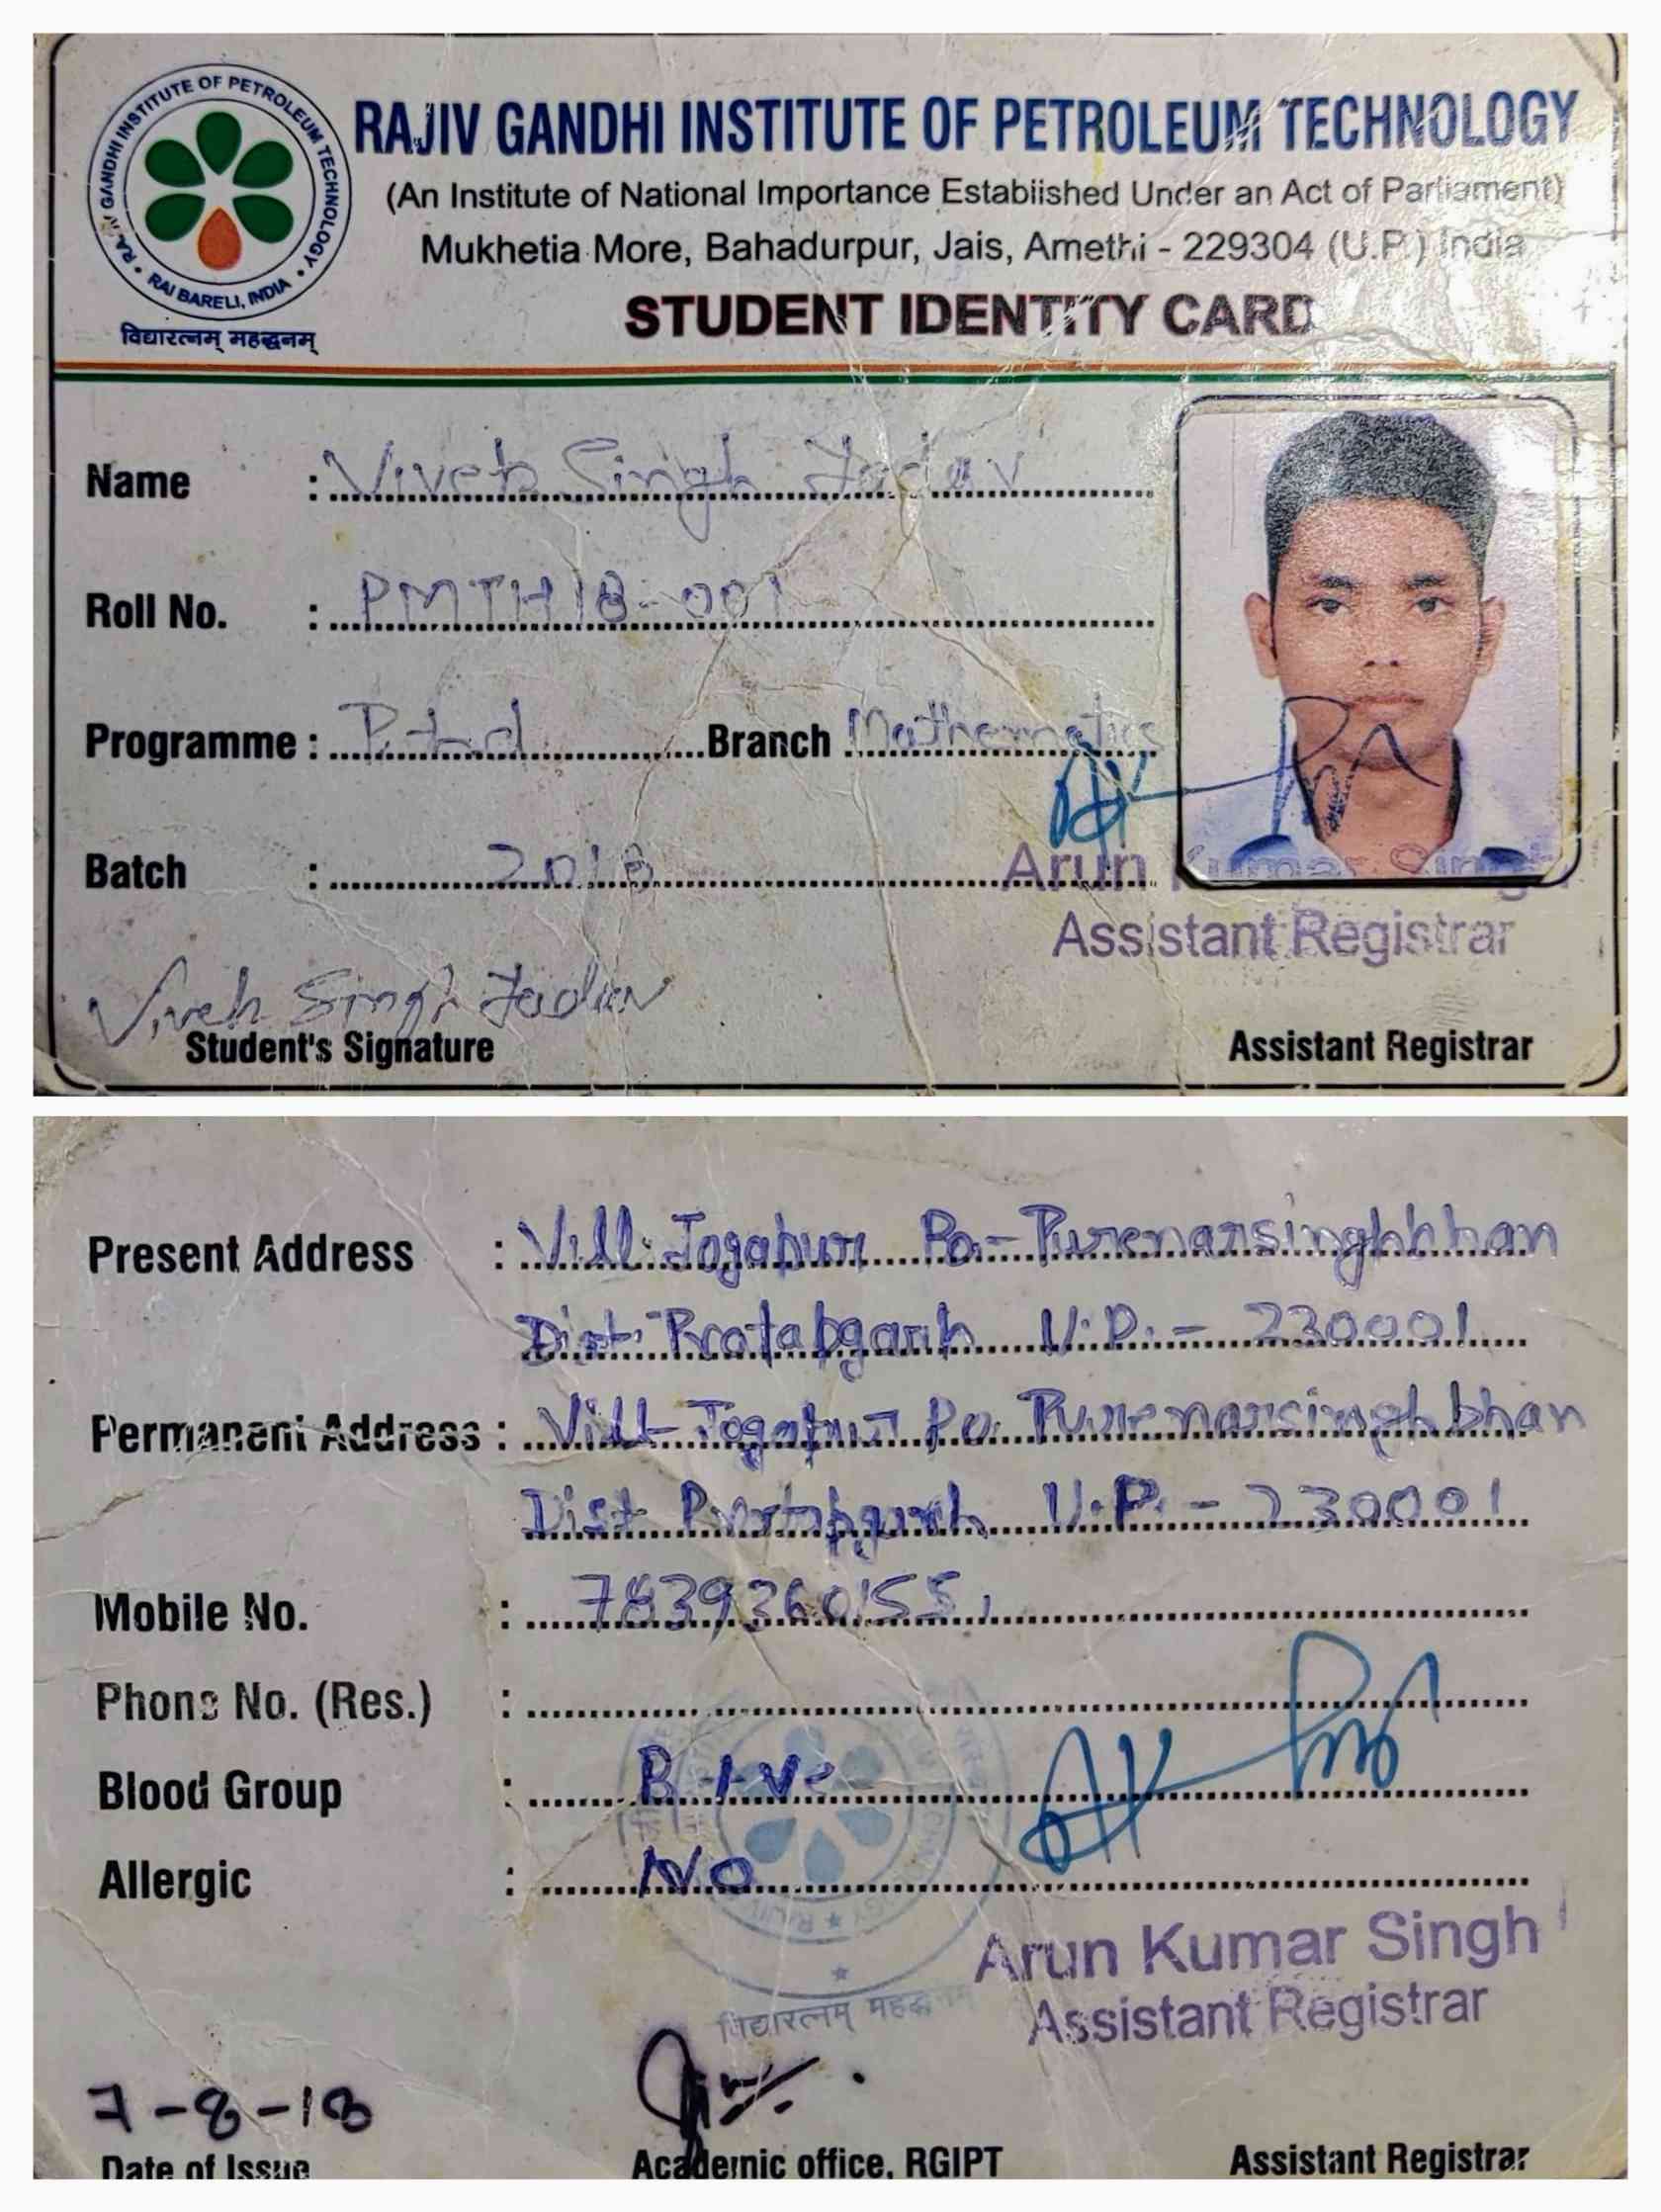 RAJIV GANDHI INSTITUTE OF PETROLEUM TECHNOLOGY
RAI BARELI, INDIA
विद्यारत्नम् महद्धनम्
RAJIV GANDHI INSTITUTE OF PETROLEUM TECHNOLOGY
(An Institute of National Importance Established Under an Act of Parliament)
Mukhetia More, Bahadurpur, Jais, Amethi - 229304 (U.P.) India
STUDENT IDENTITY CARD
Name : Vivek Singh Yadav
Roll No. : PMTH18-001
Programme : P.hd Branch Mathematics
Batch : 2018
Arun Kumar Singh
Assistant Registrar
Vivek Singh Yadav
Student's Signature
Assistant Registrar
Present Address : Vill: Jogapur Po- Purenarsinghbhan
Dist: Pratapgarh U.P. - 230001
Permanent Address : Vill- Jogapur Po. Purenarsinghbhan
Dist Pratapgarh U.P. - 230001
Mobile No. : 7839360155
Phone No. (Res.) :
Blood Group : B +ve
Allergic : NO
Arun Kumar Singh
Assistant Registrar
विद्यारत्नम् महद्धनम्
7-8-18
Date of Issue
Academic office, RGIPT
Assistant Registrar